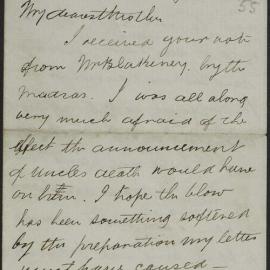 55
My dearest Mother
I received your note
from Mr Blakeney by the
Madras. I was all along
very much afraid of the
effect the announcement
of Uncles death would have
on him. I hope the blow
has been something softened
by the preparation my letter
must have caused —